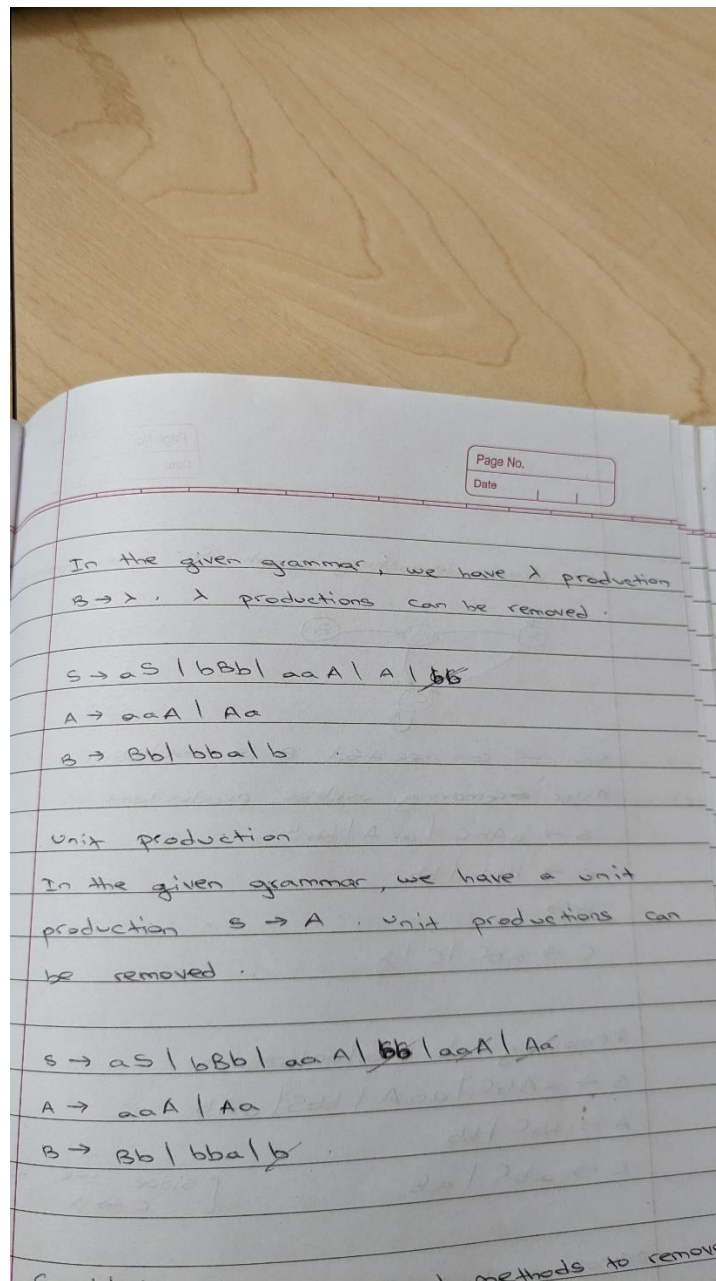 Page No.
Date
In the given grammar, we have λ production
B → λ. λ productions can be removed.
S → aS | bBb | aaA | A | bb
A → aaA | Aa
B → Bb | bba | b
Unit production
In the given grammar, we have a unit
production S → A. Unit productions can
be removed.
S → aS | bBb | aaA | bb | aaA | Aa
A → aaA | Aa
B → Bb | bba | b
methods to remove